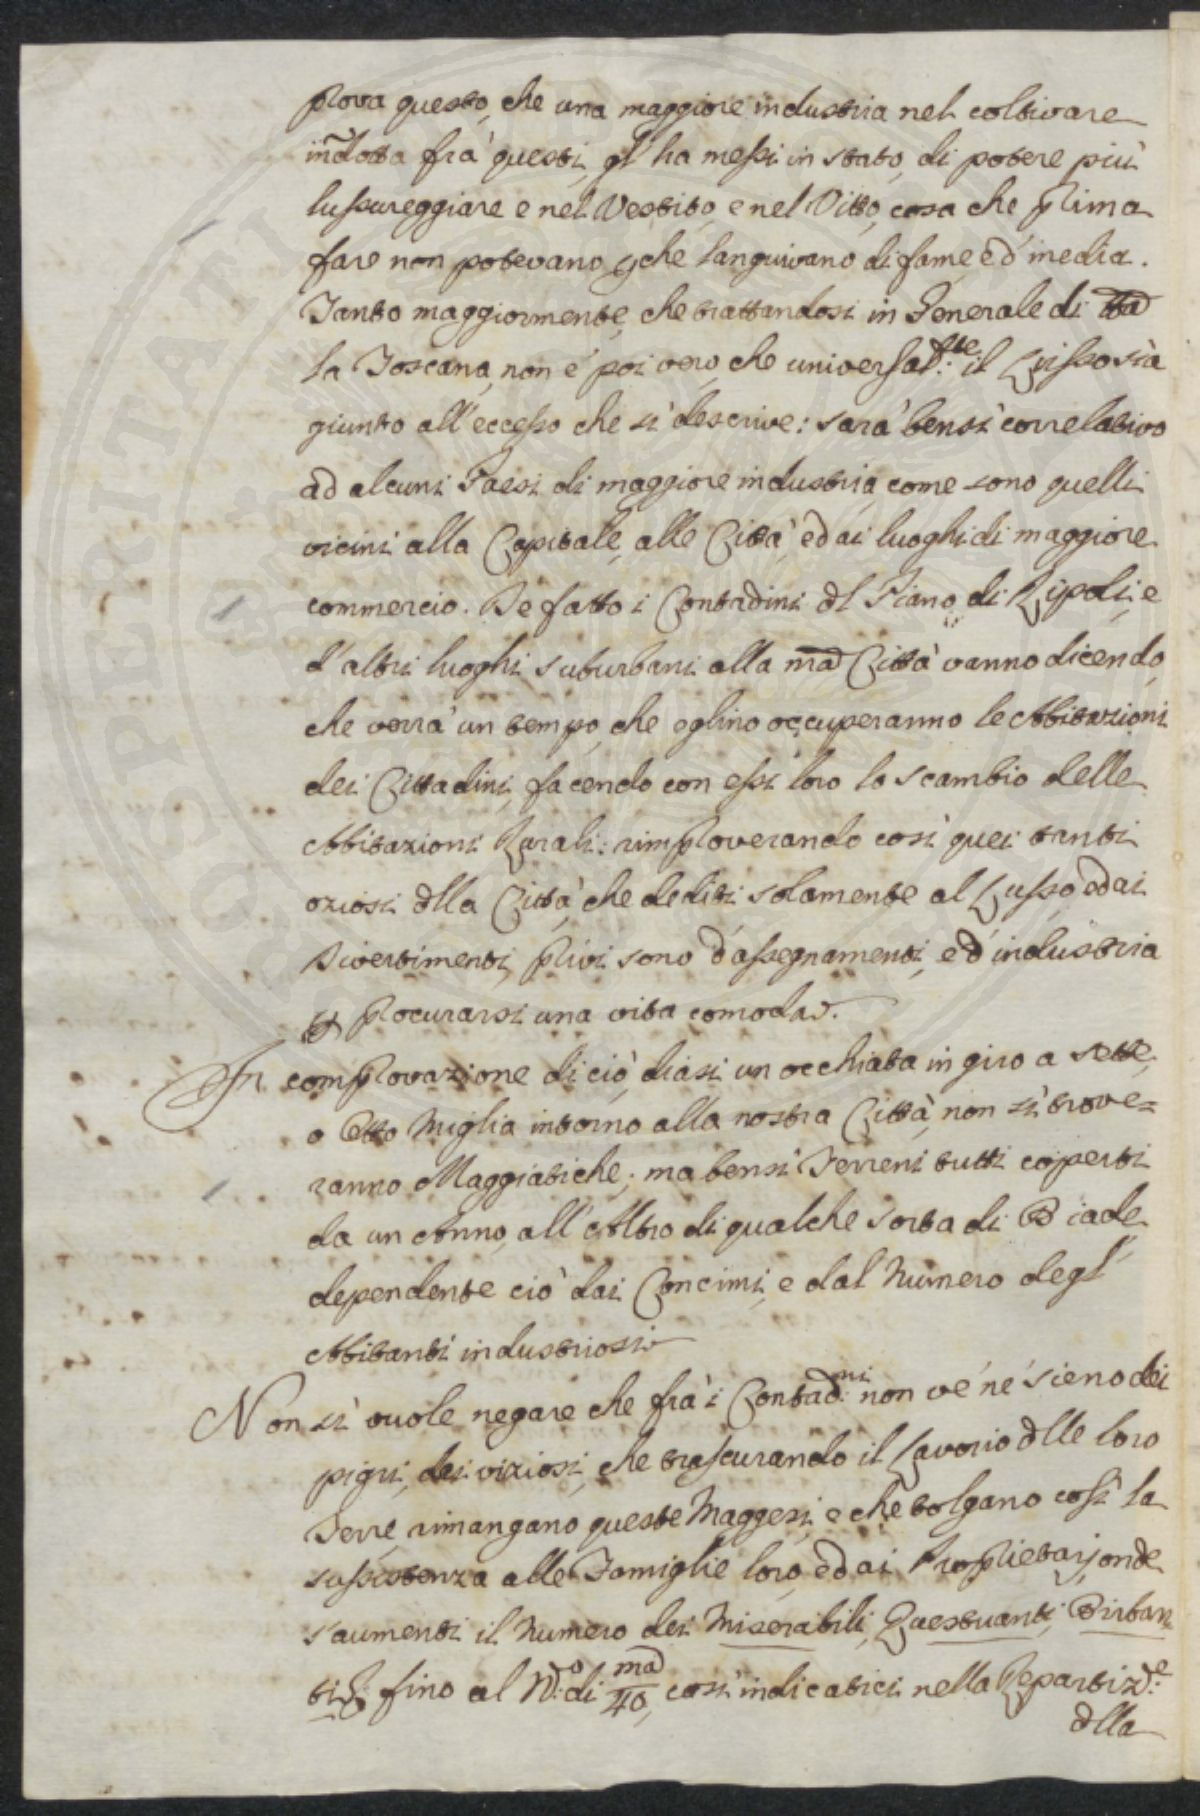 prova questo, che una maggiore industria nel coltivare
indotta frà questi, gl'ha messi in stato, di potere più
lussureggiare e nel Vestito, e nel Vitto, cosa che prima
fare non potevano, pche languivano di fame, ed' inedia.
Tanto maggiormente, che trattandosi in Generale di tta
la Toscana, non e' poi vero, che universalmte: il Lusso sia
giunto all'eccesso che si descrive: sarà bensì correlativo
ad alcuni Paesi di maggiore industria, come sono quelli
vicini alla Capitale, alle Città, ed ai luoghi di maggiore
commercio. De fatto i Contadini dl Piano di Ripoli, e
d'altri luoghi suburbani alla nra Città vanno dicendo,
che verrà un tempo, che eglino occuperanno le Abitazioni
dei Cittadini, facendo con essi loro lo scambio delle
Abitazioni Rurali: rimproverando così quei tanti
oziosi dlla Città, che dediti solamente al Lusso, ed ai
Divertimenti, privi sono d'assegnamenti, ed' industria
p procurarsi una vita comoda.
In comprovazione di ciò, diasi un occhiata in giro a sette,
o Otto Miglia intorno alla nostra Città, non si trove=
ranno Maggiatiche; ma bensì Terreni tutti coperti
da un Anno, all'Altro di qualche sorta di Biade,
dependente ciò dai Concimi, e dal Numero degl'
Abitanti industriosi.
Non si vuole negare che frà i Contadni: non ve' ne' sieno dei
pigri, dei viziosi, che trascurando il Lavorio dlle loro
Terre, rimangano queste Maggesi, e che tolgano così la
sussistenza alle Famiglie loro, ed ai Proprietarj, onde
s'aumenti il Numero dei Miserabili, Questuanti, Birban
ti &: fino al N:o di 40, così indicatici nella Repartize:
dlla